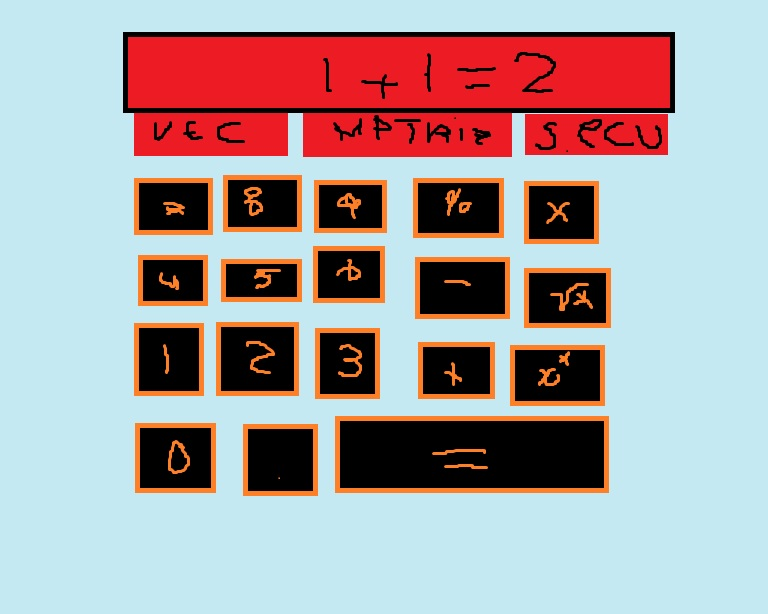 1 + 1 = 2
VEC MATRIZ S.ECU
7 8 9 % x
4 5 6 - √x
1 2 3 + x^x
0 . =